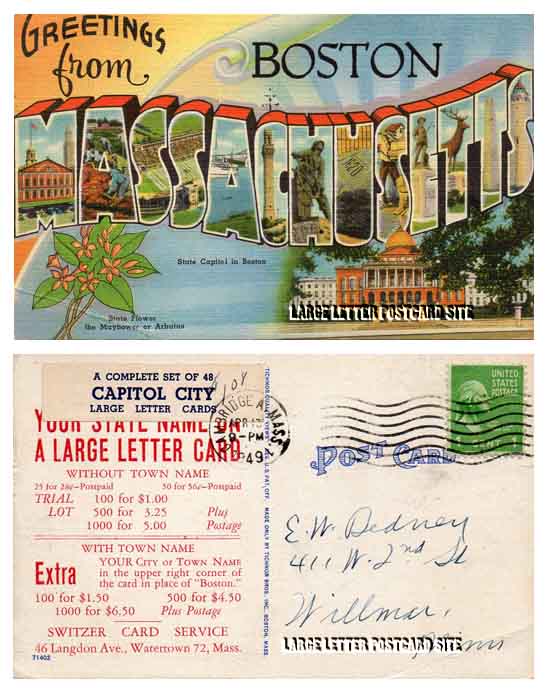 GREETINGS
from
BOSTON
MASSACHUSETTS
State Capitol in Boston
State Flower
the Mayflower or Arbutus
LARGE LETTER POSTCARD SITE
A COMPLETE SET OF 48
CAPITOL CITY
LARGE LETTER CARDS
YOUR STATE NAME ON
A LARGE LETTER CARD
WITHOUT TOWN NAME
25 for 28¢—Postpaid 50 for 56¢—Postpaid
TRIAL 100 for $1.00
LOT 500 for 3.25 Plus
1000 for 5.00 Postage
WITH TOWN NAME
Extra YOUR CITY or TOWN NAME
in the upper right corner of
the card in place of "Boston."
100 for $1.50 500 for $4.50
1000 for $6.50 Plus Postage
SWITZER CARD SERVICE
46 Langdon Ave., Watertown 72, Mass.
71402
MADE ONLY BY TICHNOR BROS., INC., BOSTON, MASS.
CAMBRIDGE A, MASS
APR
8-PM
1949
UNITED
STATES
POSTAGE
1 CENT 1
POST CARD
E.W. Dedney
411 W. 2nd St
Willmar,
Minn
LARGE LETTER POSTCARD SITE